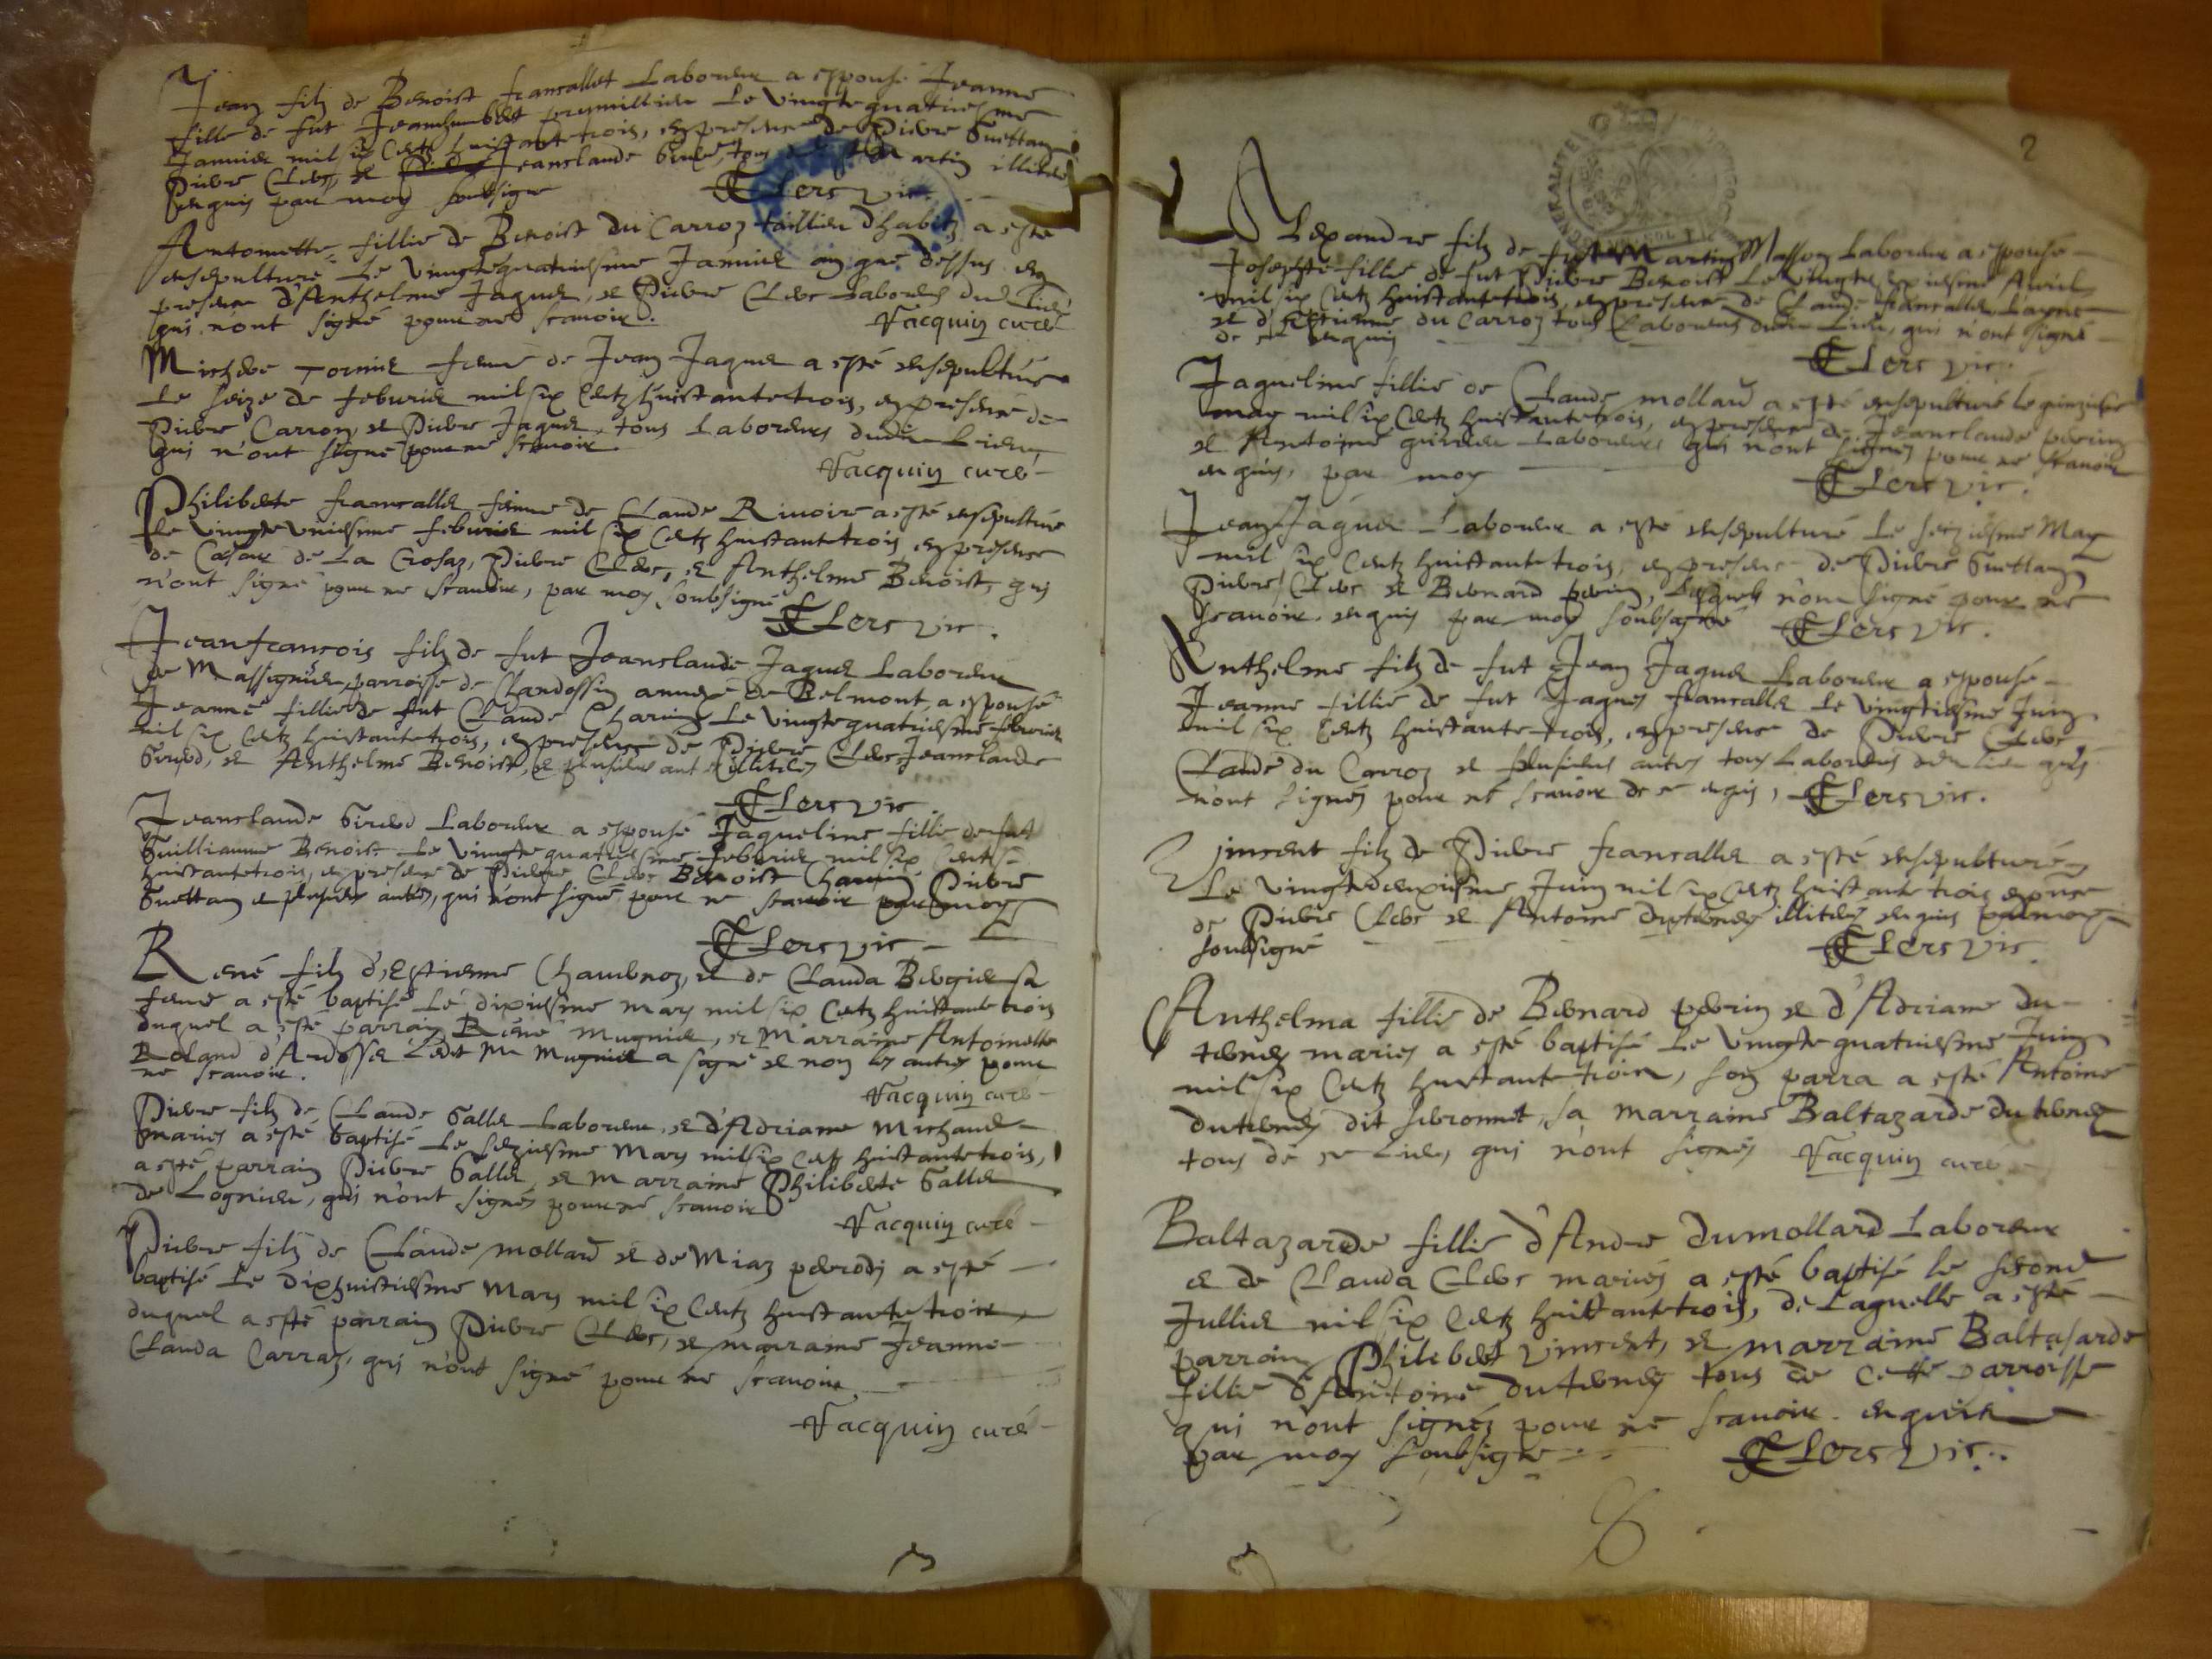 Jean filz de Benoist francallet Laboreur a espousé Jeanne
fille de fut Jeanhumbert le vingtequatriesme
Januier mil six Centz huictantetrois, en presence de Pierre Guettan
Pierre Clerc, et Jeanclaude Girerd, tous Martin illiteres
enquis par moy soubsigne Clerc vic.
Antoinette fillie de Benoist du Carroz taillieur d'habitz a esté
ensepulturé Le vingtequatriesme Januier an que dessus en
presence d'Anthelme Jaquer, et Pierre Clerc Laboreurs dud Lieu
qui n'ont signé pour ne scauoir. Vacquin curé
Michere Tornier feme de Jean Jaquer a esté ensepulturé
Le seize de feburier mil six Centz huictantetrois, en presence de
Pierre Carron, et Pierre Jaquer, tous Laboreurs dudit Lieu,
qui n'ont signé pour ne scauoir.
Vacquin curé
Philiberte francaller femme de Claude Riuoire a esté ensepulturé
le vingtevniesme feburier mil six Centz huictantetrois en presence
de Cæsar de La Crosaz, Pierre Clerc, et Anthelme Benoist, qui
n'ont signé pour ne scauoir, par moy soubsigné
Clerc vic.
Jeanfrancois filz de fut Jeanclaude Jaquer Laboreur
de Massignieu parroisse de Chandossin annexe de Belmont, a espousé
Jeanne fillie de fut Claude Charuin Le vingtequatriesme feburier
mil six Centz huictantetrois, en presence de Pierre Clerc Jeanclaude
Girerd, et Anthelme Benoist, et plusieurs aut illiteres
Clerc vic.
Jeanclaude Girerd Laboreur a espousé Jaqueline fillie de fut
Guilliaume Benoist Le vingtequatriesme feburier mil six Centz
huictantetrois, en presence de Pierre Clerc Benoist Charuin Pierre
Guettan et plusieurs autres, qui n'ont signé pour ne scauoir par moy
Clerc vic
René filz d'Estienne Chauenoz, et de Clauda Bergier sa
feme a esté baptisé Le dixiesme mars mil six Centz huictante trois
duquel a esté parrain René Mugnier, et Marraine Antoinette
Roland d'Ardosset Ledt Mr Mugnier a signé et non les autres pour
ne scauoir.
Vacquin curé
Pierre filz de Claude Galler Laboreur, et d'Adriane Michaud
maries a esté baptisé Le seziesme Mars mil six Centz huictantetrois,
a esté parrain Pierre Galler et Marraine Philiberte Galler
de Lognieu, qui n'ont signés pour ne scauoir
Vacquin curé
Pierre filz de Claude Mollard et de Miaz perrod a esté
baptisé Le dixhuictiesme Mars mil six Centz huictantetrois,
duquel a esté parrain Pierre Clerc, et marraine Jeanne
Clauda Carraz, qui n'ont signé pour ne scauoir,
Vacquin curé
2
Alexandre filz de fut Martin Masson Laboreur a espousé
Josephte fillie de fut Pierre Benoist Le Auril
mil six Centz huictantetrois, en presence de Claude francaller
et d'Estienne du Carroz tous Laboreurs dudit Lieu, qui n'ont signé
de ce enquis
Clerc vic.
Jaqueline fillie de Claude mollard a esté ensepulturé le
may mil six Centz huictantetrois, en presence de Jeanclaude perin
et Antoine Laboreurs qui n'ont signés pour ne scauoir
enquis, par moy Clerc vic.
Jean Jaquer Laboreur a esté ensepulturé Le seiziesme May
mil six Centz huictantetrois, en presence de Pierre Guettan
Pierre Clerc et Bernard perin, Lesquels n'ont signé pour ne
scauoir, enquis par moy soubsigné Clerc vic.
Anthelme filz de fut Jean Jaquer Laboreur a espousé
Jeanne fillie de fut Jaques francaller Le vingtiesme Juin
mil six Centz huictantetrois, en presence de Pierre Clerc
Claude du Carroz et plusieurs autres tous Laboreurs dudit lieu qui
n'ont signés pour ne scauoir de ce enquis, Clerc vic.
Vincent filz de Pierre francaller a esté ensepulturé
Le vingtedeuxiesme Juin mil six Centz huictante trois
de Pierre Clerc et Antoine duterney illiteres enquis par moy
soubsigné Clerc vic
Anthelma fillie de Bernard perrin et d'Adriane du
terney maries a esté baptisé Le vingtequatriesme Juin
mil six Centz huictantetrois, son parra a esté Antoine
duterney dit Seronnet, sa marraine Baltazarde duterney
tous de ce Lieu, qui n'ont signés Vacquin curé
Baltazarde fillie d'André dumollard Laboreur
et de Clauda Clerc mariés a esté baptisé le second
Jullier mil six Centz huictantetrois, de Laquelle a esté
parrain Philibert vincent, et marraine Baltasarde
fillie d'Antoine duterney tous de cette parroisse
qui n'ont signéz pour ne scauoir enquis
par moy soubsigne Clerc vic.